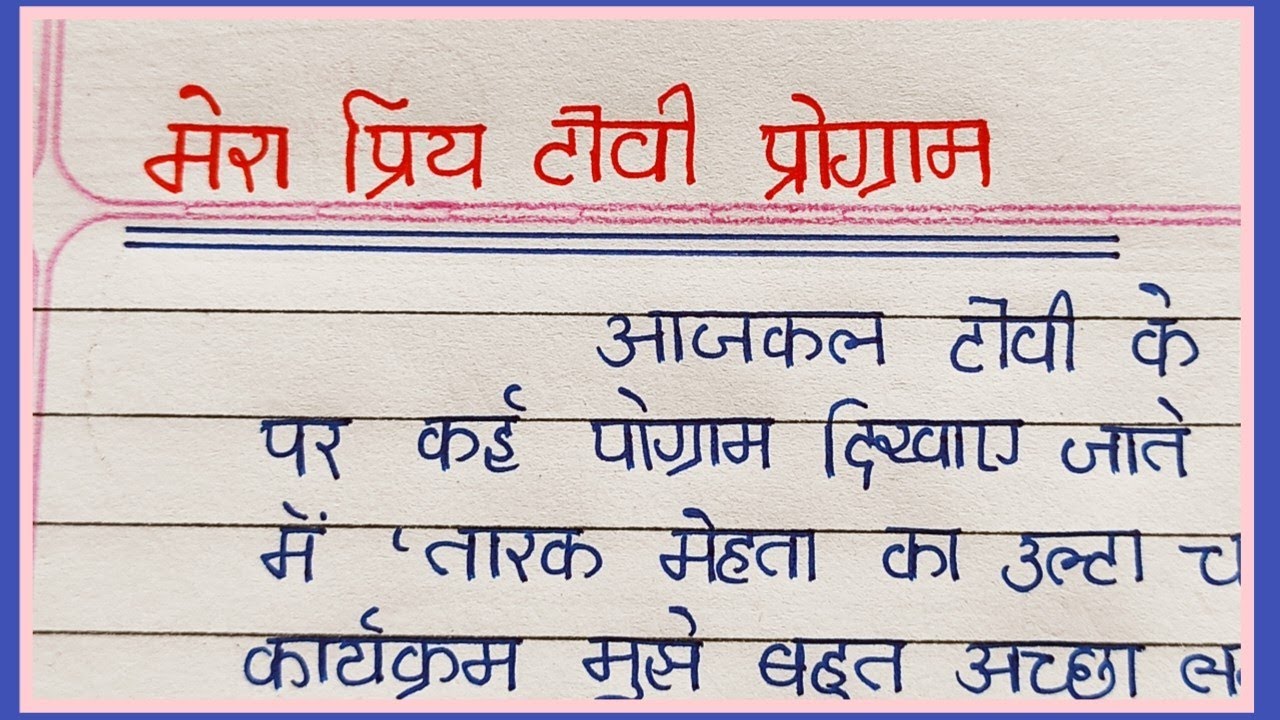 मेरा प्रिय टीवी प्रोग्राम
आजकल टीवी के
पर कई पोग्राम दिखाए जाते
में 'तारक मेहता का उल्टा च
कार्यक्रम मुझे बहुत अच्छा ल